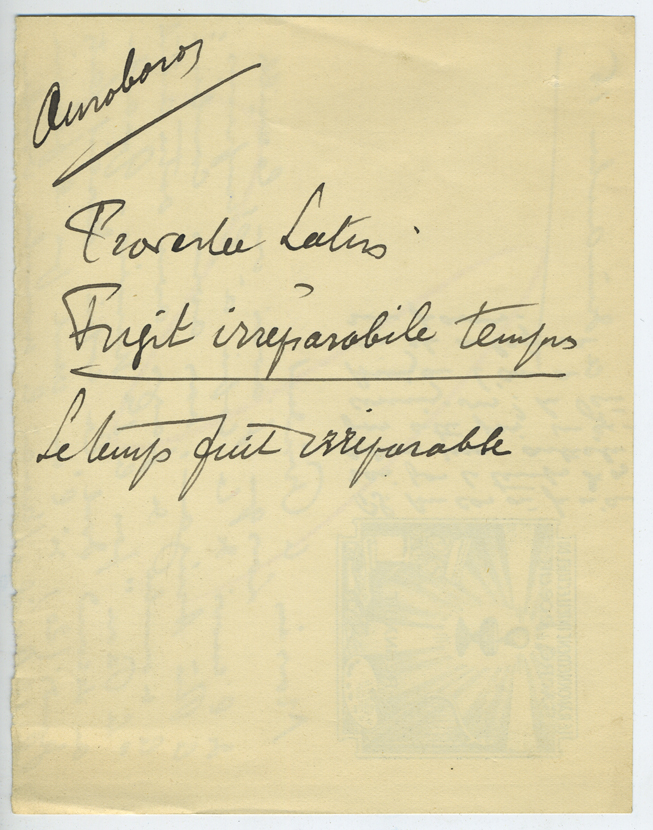 Ouroboros
Proverbe Latin
Fugit irréparabile temps
Le temps fuit irréparable